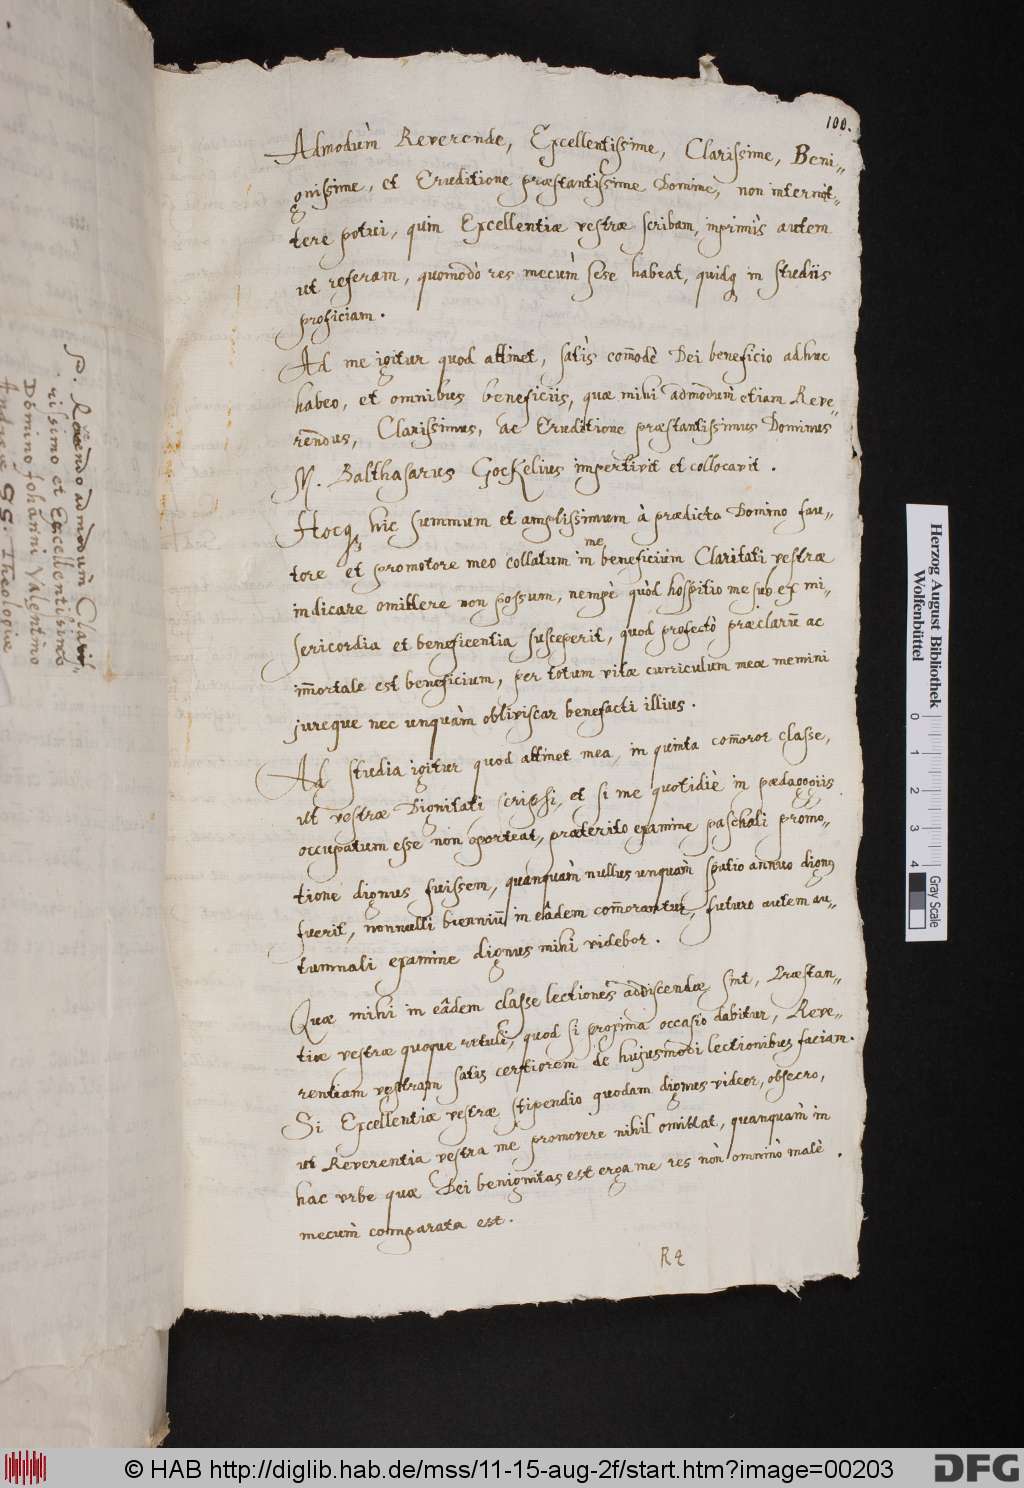 100.
Admodùm Reverende, Excellentissime, Clarissime, Beni-
gnissime, et Eruditione præstantissime Domine, non intermit-
tere potui, quin Excellentiæ vestræ scribam, inprimis autem
ut referam, quomodò res mecùm sese habeat, quidq in studiis
proficiam.
Ad me igitur quod attinet, satis com̄odè Dei beneficio adhuc
habeo, et omnibus beneficiis, quæ mihi admodùm etiam Reve-
rendus, Clarissimus, ac Eruditione præstantissimus Dominus
M. Balthasarus Gockelius impertivit et collocavit.
Hocq hic summum et amplissimum à prædicto Domino fau-
tore et promotore meo collatum in me beneficium Claritati vestræ
indicare omittere non possum, nempè quòd hospitio me sub ex mi-
sericordia et beneficentia susceperit, quod profectò præclarū ac
im̄ortale est beneficium, per totum vitæ curriculum meæ memini
jureque nec unquàm obliviscar benefacti illius.
Ad studia igitur quod attinet mea, in quinta com̄oror classe,
ut vestræ Dignitati scripsi, et si me quotidiè in pædagogiis
occupatum esse non oporteat, præterito examine paschali promo-
tione dignus fuissem, quanquàm nullus unquàm spatio annuo dignus
fuerit, nonnulli bienniū in eâdem com̄orantur, futuro autem au-
tumnali examine dignus mihi videbor.
Quæ mihi in eâdem classe lectiones addiscendæ sint, Præstan-
tiæ vestræ quoque retuli, quod si proxima occasio dabitur, Reve-
rentiam vestram satis certiorem de hujusmodi lectionibus faciam.
Si Excellentiæ vestræ stipendio quodam dignus videor, obsecro,
ut Reverentia vestra me promovere nihil omittat, quanquàm in
hac urbe quæ Dei benignitas est erga me res non omninò malè
mecùm comparata est.
R 2
S. Reverendo admodùm Claris-
risimo et Excellentissimo
Domino Johanni Valentino
Andreæ SS. Theologiæ
Herzog August Bibliothek
Wolfenbüttel
0 1 2 3 4
Gray Scale
© HAB http://diglib.hab.de/mss/11-15-aug-2f/start.htm?image=00203
DFG